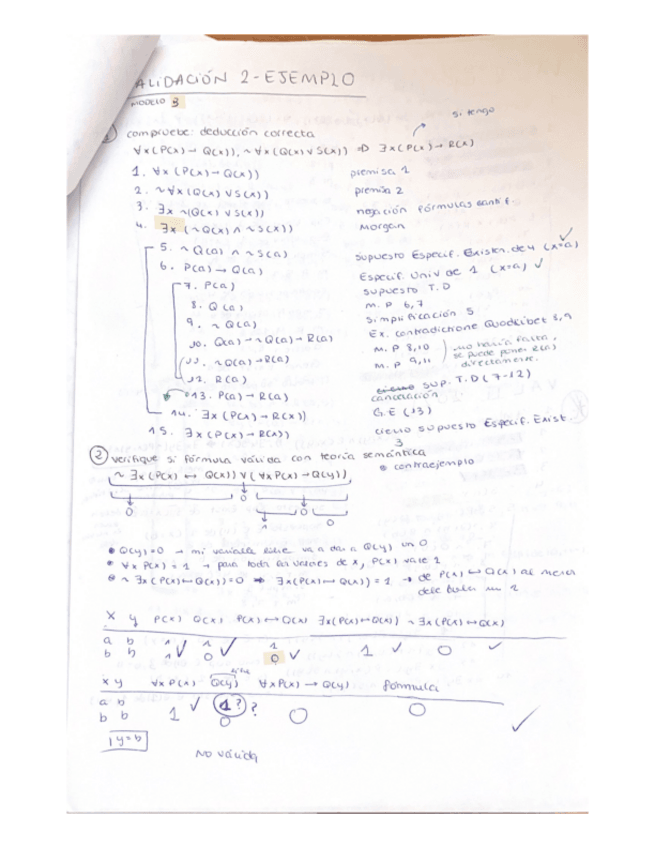 ALIDACIÓN 2 - EJEMPLO
MODELO B
si tengo
1 compruebe: deducción correcta
∀x(P(x) → Q(x)), ~∀x(Q(x) ∨ S(x)) ⇒ ∃x(P(x) → R(x)
1. ∀x (P(x) → Q(x)) premisa 1
2. ~∀x (Q(x) ∨ S(x)) premisa 2
3. ∃x ~(Q(x) ∨ S(x)) negación fórmulas cantif.
4. ∃x (~Q(x) ∧ ~S(x)) Morgan
5. ~Q(a) ∧ ~S(a) supuesto Especif. Existen. de 4 (x=a) ✓
6. P(a) → Q(a) Especif. Univ de 1 (x=a) ✓
7. P(a) supuesto T.D
8. Q(a) M.P 6,7
9. ~Q(a) simplificación 5
10. Q(a) → ~Q(a) → R(a) Ex. contradictione Quodlibet 8,9
11. ~Q(a) → R(a) M.P 8,10 no hacía falta,
12. R(a) M.P 9,11 se puede poner R(a) directamente.
13. P(a) → R(a) cancelación SUP. T.D (7-12)
14. ∃x (P(x) → R(x)) G.E (13)
15. ∃x (P(x) → R(x)) cierro supuesto Especif. Exist.
3
2 verifique si fórmula válida con teoría semántica
~∃x (P(x) ↔ Q(x)) ∨ (∀x P(x) → Q(y)) contraejemplo
0 0 0
1 0
Q(y)=0 → mi variable libre va a dar a Q(y) un 0
∀x P(x) = 1 → para todos los valores de x, P(x) vale 1
~∃x (P(x) ↔ Q(x)) = 0 ⇒ ∃x (P(x) ↔ Q(x)) = 1 → de P(x) ↔ Q(x) al menos
debe haber un 1
x y P(x) Q(x) P(x) ↔ Q(x) ∃x(P(x) ↔ Q(x)) ~∃x(P(x) ↔ Q(x))
a b 1 ✓ 1 ✓ 1 ✓ 1 ✓ 0 ✓
b b 1 0 0
libre
x y ∀x P(x) Q(y) ∀x P(x) → Q(y) fórmula
a b 1 ✓ 1? ? 0 0
b b 0 ✓
y=b
No válida